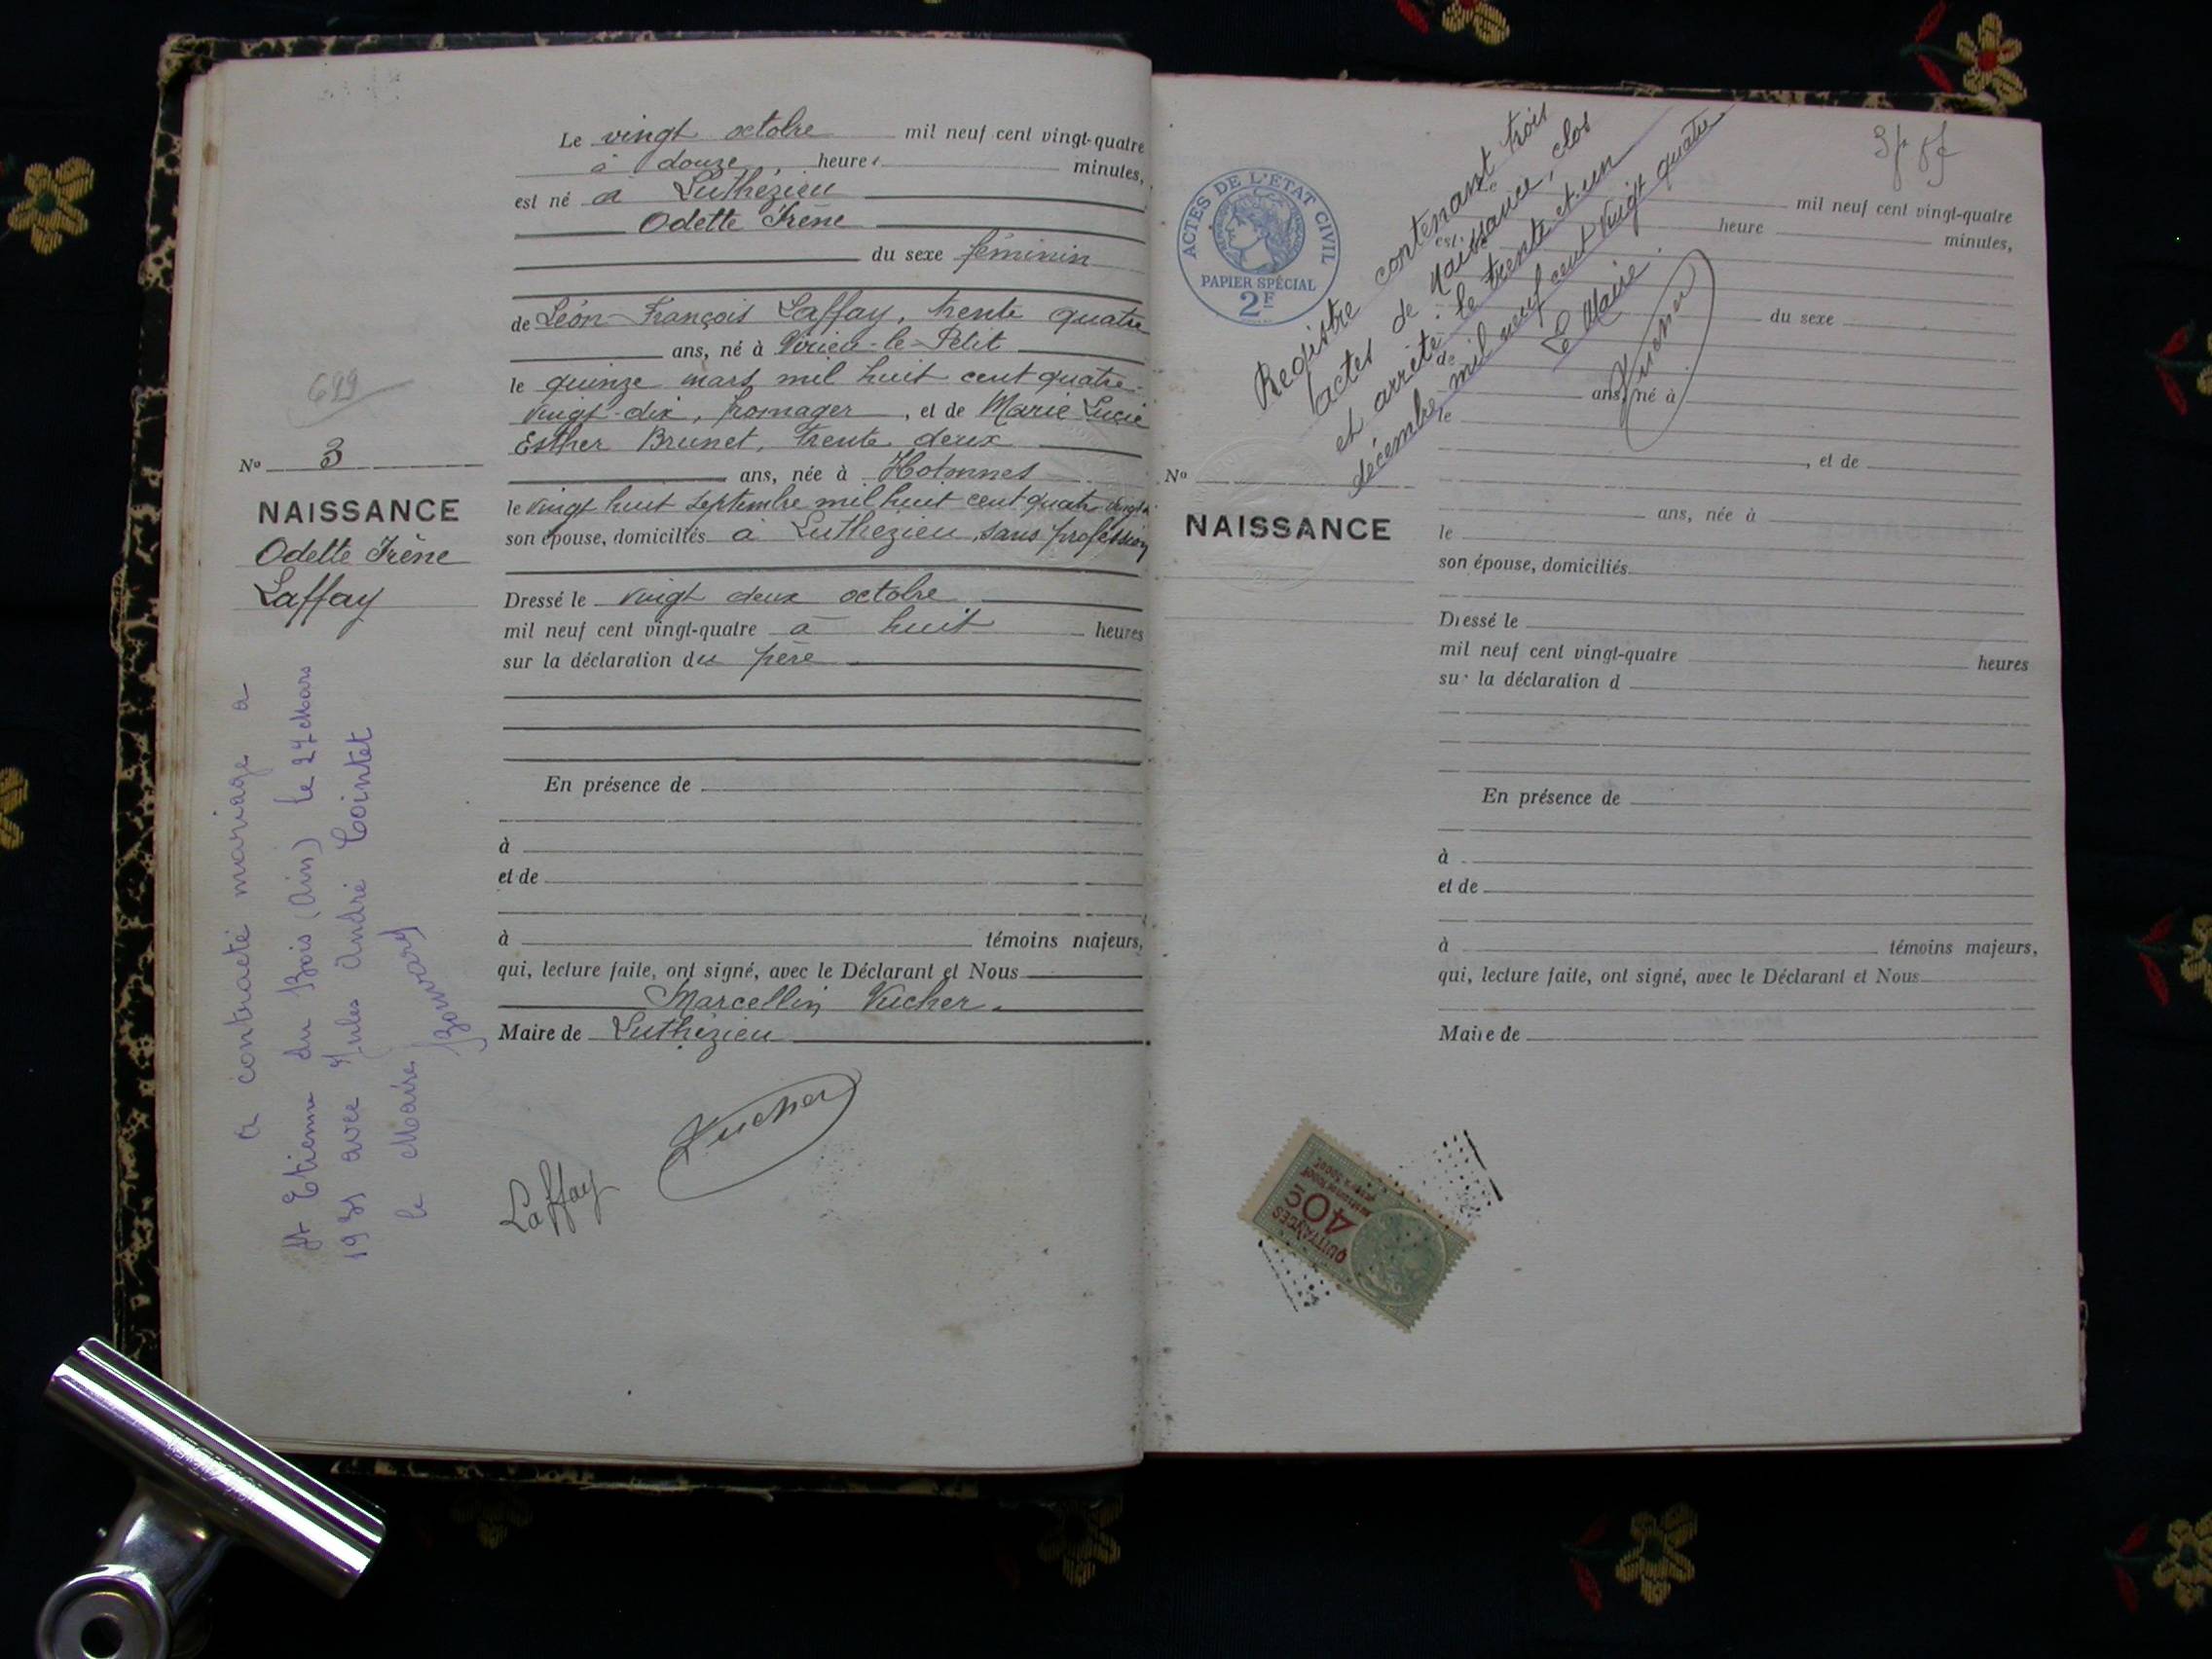 Le vingt octobre mil neuf cent vingt-quatre
à douze heures minutes,
est né à Luthézieu
Odette Irène
du sexe féminin
de Léon François Laffay, trente quatre
ans, né à Virieu-le-Petit
le quinze mars mil huit cent quatre-
vingt-dix, fromager, et de Marie Lucie
Esther Brunet, trente deux
ans, née à Hotonnes
le vingt huit septembre mil huit cent quatre vingt
son épouse, domiciliés à Luthézieu, sans profession
Dressé le vingt deux octobre
mil neuf cent vingt-quatre à huit heures
sur la déclaration du père
En présence de
à
et de
à témoins majeurs,
qui, lecture faite, ont signé, avec le Déclarant et Nous
Marcellin Vucher.
Maire de Luthézieu
Laffay
Vucher
699
No 3
NAISSANCE
Odette Irène
Laffay
a contracté mariage a
St Etienne du Bois (Ain) le 27 Mars
avec Jules André Cointet
le Maire
ACTES DE L'ÉTAT CIVIL
PAPIER SPÉCIAL
2F
Registre contenant trois
actes de Naissance, clos
et arrêté le trente et un
décembre mil neuf cent vingt quatre
Le Maire.
Vucher
mil neuf cent vingt-quatre
est heure minutes,
du sexe
de
ans, né à
le
, et de
No
ans, née à
NAISSANCE
le
son épouse, domiciliés
Dressé le
mil neuf cent vingt-quatre heures
sur la déclaration d
En présence de
à
et de
à témoins majeurs,
qui, lecture faite, ont signé, avec le Déclarant et Nous
Maire de
QUITTANCES
40c